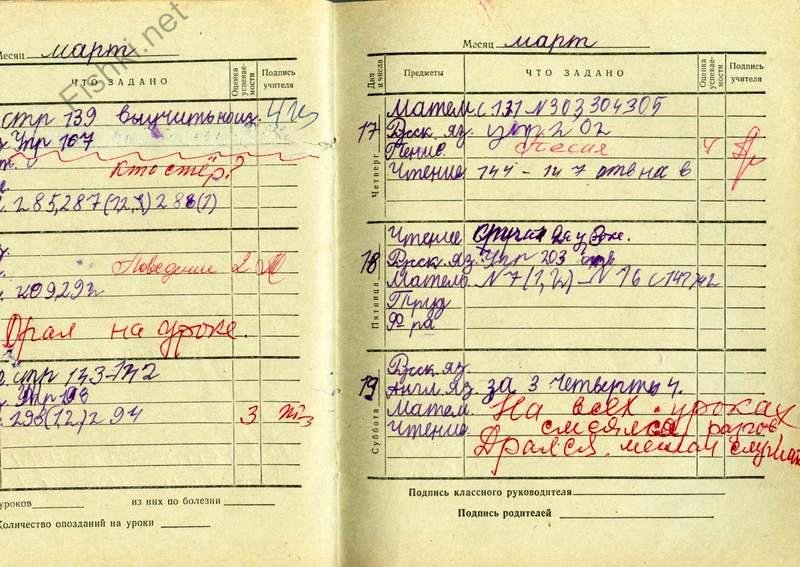 Fishki.net
Месяц март
ЧТО ЗАДАНО Оценка успеваемости Подпись учителя
стр 139 выучить наиз.
Упр 167
Кто стёр?
285,287(1,2,3) 288(1)
Поведение 2
209,292
Орал на уроке.
стр 143-142
Упр
293(12) 294 3
уроков из них по болезни
Количество опозданий на уроки
Месяц март
Дни и числа Предметы ЧТО ЗАДАНО Оценка успеваемости Подпись учителя
17 Четверг
Матем с 131 N 303, 304 305
Русск. яз. упр 202
Пение. Песня 4
Чтение 144-147 отв на в
18 Пятница
Чтение на уроке.
Русск. яз. Упр 203
Матем. N 7(1,2) - N 16 с 147
Труд
Ф ра
19 Суббота
Русск. яз.
Англ. яз за 3 четверть 4.
Матем. На всех уроках
Чтение. смеялся, разгов
Дрался, мешал слушат
Подпись классного руководителя
Подпись родителей